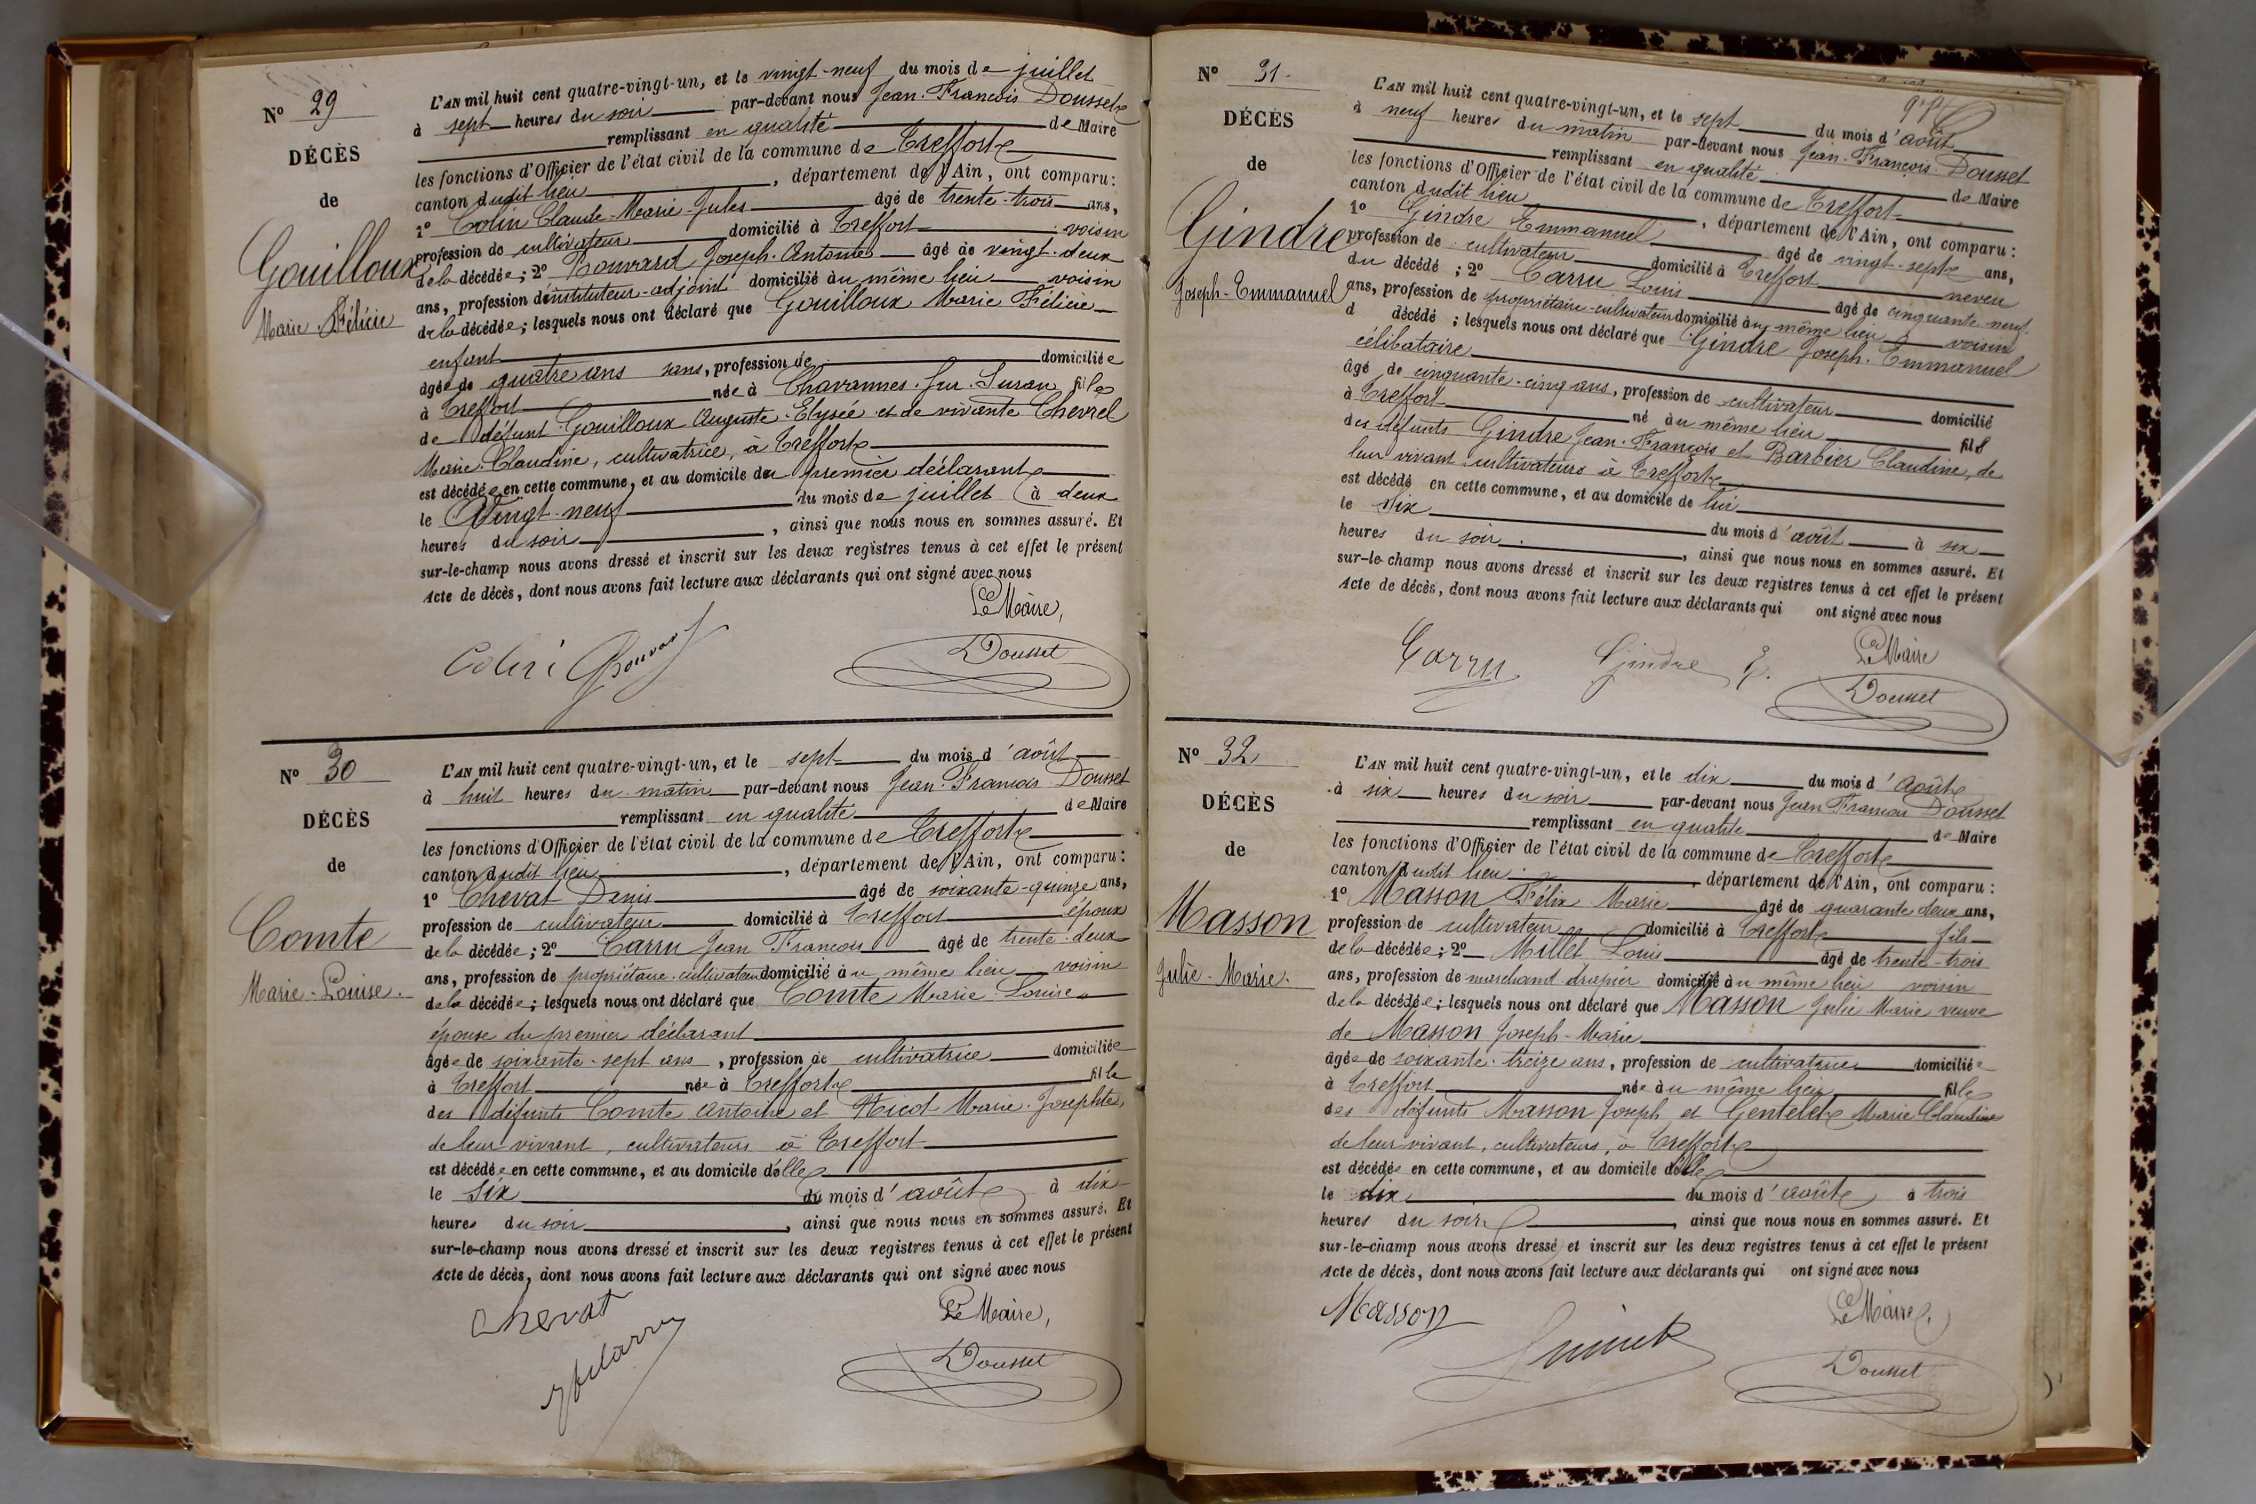 N° 29
DÉCÈS
de
Gouilloux
Marie-Félicie
L'AN mil huit cent quatre-vingt-un, et le vingt-neuf du mois de juillet
à sept heures du soir par-devant nous Jean-François Dousset
remplissant en qualité de Maire
les fonctions d'Officier de l'état civil de la commune de Treffort
canton dudit lieu, département de l'Ain, ont comparu:
1° Colin Claude-Marie-Jules âgé de trente-trois ans,
profession de cultivateur domicilié à Treffort voisin
de la décédée; 2° Bouvard Joseph-Antoine âgé de vingt-deux
ans, profession d'instituteur-adjoint domicilié au même lieu voisin
de la décédée; lesquels nous ont déclaré que Gouilloux Marie Félicie
enfant
âgée de quatre ans sans, profession de domiciliée
à Treffort née à Chavannes-sur-Suran fille
de défunt Gouilloux Auguste-Elysée et de vivante Chevrel
Marie-Claudine, cultivatrice, à Treffort
est décédée en cette commune, et au domicile du premier déclarant
le vingt-neuf du mois de juillet à deux
heures du soir, ainsi que nous nous en sommes assuré. Et
sur-le-champ nous avons dressé et inscrit sur les deux registres tenus à cet effet le présent
Acte de décès, dont nous avons fait lecture aux déclarants qui ont signé avec nous
Le Maire,
Colin Bouvard Dousset
N° 30
DÉCÈS
de
Comte
Marie-Louise.
L'AN mil huit cent quatre-vingt-un, et le sept du mois d'août
à huit heures du matin par-devant nous Jean-François Dousset
remplissant en qualité de Maire
les fonctions d'Officier de l'état civil de la commune de Treffort
canton dudit lieu, département de l'Ain, ont comparu:
1° Chevat Denis âgé de soixante-quinze ans,
profession de cultivateur domicilié à Treffort époux
de la décédée; 2° Carru Jean François âgé de trente-deux
ans, profession de propriétaire-cultivateur domicilié au même lieu voisin
de la décédée; lesquels nous ont déclaré que Comte Marie-Louise
épouse du premier déclarant
âgée de soixante-sept ans, profession de cultivatrice domiciliée
à Treffort née à Treffort fille
des défunts Comte Antoine et Nicod Marie-Josephte,
de leur vivant, cultivateurs à Treffort
est décédée en cette commune, et au domicile d'elle
le six du mois d'août à dix
heures du soir, ainsi que nous nous en sommes assuré. Et
sur-le-champ nous avons dressé et inscrit sur les deux registres tenus à cet effet le présent
Acte de décès, dont nous avons fait lecture aux déclarants qui ont signé avec nous
Chevat Le Maire,
Dousset
N° 31
DÉCÈS
de
Gindre
Joseph-Emmanuel
L'AN mil huit cent quatre-vingt-un, et le sept du mois d'août
à neuf heures du matin par-devant nous Jean-François Dousset
remplissant en qualité de Maire
les fonctions d'Officier de l'état civil de la commune de Treffort
canton dudit lieu, département de l'Ain, ont comparu:
1° Gindre Emmanuel âgé de vingt-sept ans,
profession de cultivateur domicilié à Treffort neveu
du décédé; 2° Carru Louis âgé de cinquante-neuf
ans, profession de propriétaire-cultivateur domicilié au même lieu voisin
d décédé; lesquels nous ont déclaré que Gindre Joseph-Emmanuel
célibataire
âgé de cinquante-cinq ans, profession de cultivateur domicilié
à Treffort né au même lieu fils
des défunts Gindre Jean-François et Barbier Claudine, de
leur vivant cultivateurs à Treffort
est décédé en cette commune, et au domicile de lui
le six du mois d'août à six
heures du soir, ainsi que nous nous en sommes assuré. Et
sur-le-champ nous avons dressé et inscrit sur les deux registres tenus à cet effet le présent
Acte de décès, dont nous avons fait lecture aux déclarants qui ont signé avec nous
Le Maire
Carru Gindre E. Dousset
N° 32
DÉCÈS
de
Masson
Julie-Marie.
L'AN mil huit cent quatre-vingt-un, et le dix du mois d'août
à six heures du soir par-devant nous Jean François Dousset
remplissant en qualité de Maire
les fonctions d'Officier de l'état civil de la commune de Treffort
canton dudit lieu, département de l'Ain, ont comparu:
1° Masson Félix Marie âgé de quarante deux ans,
profession de cultivateur domicilié à Treffort fils
de la décédée; 2° Millet Louis âgé de trente-trois
ans, profession de marchand drapier domicilié au même lieu voisin
de la décédée; lesquels nous ont déclaré que Masson Julie Marie veuve
de Masson Joseph-Marie
âgée de soixante-treize ans, profession de cultivatrice domiciliée
à Treffort née au même lieu fille
des défunts Masson Joseph et Gentelet Marie Claudine
de leur vivant, cultivateurs, à Treffort
est décédée en cette commune, et au domicile d'elle
le dix du mois d'août à trois
heures du soir, ainsi que nous nous en sommes assuré. Et
sur-le-champ nous avons dressé et inscrit sur les deux registres tenus à cet effet le présent
Acte de décès, dont nous avons fait lecture aux déclarants qui ont signé avec nous
Masson Le Maire,
Dousset